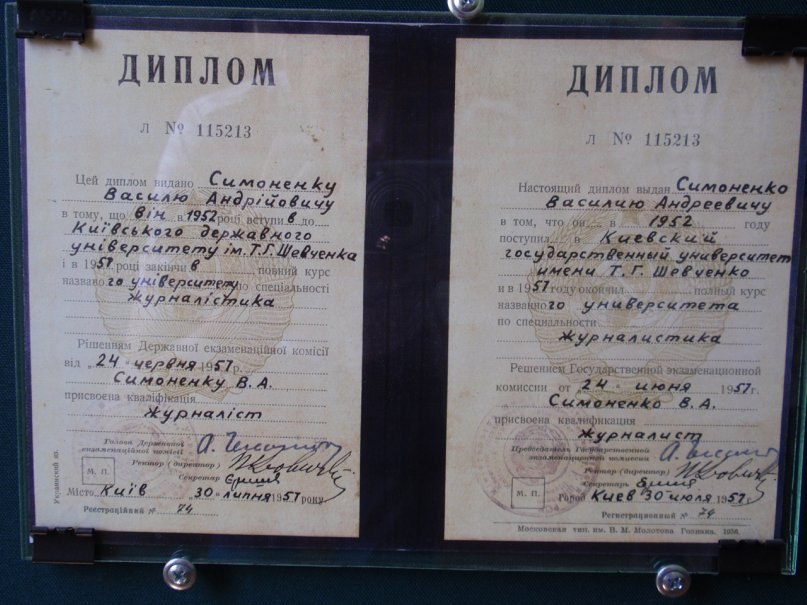 ДИПЛОМ
Л № 115213
Цей диплом видано Симоненку
Василю Андрійовичу
в тому, що він в 1952 році вступив до
Київського державного
університету ім. Т. Г. Шевченка
і в 1957 році закінчив повний курс
названого університету по спеціальності
журналістика
Рішенням Державної екзаменаційної комісії
від „24" червня 1957 р.
Симоненку В. А.
присвоєна кваліфікація
журналіст
Голова Державної
екзаменаційної комісії
Ректор (директор)
Секретар
М. П.
Місто Київ „30" липня 1957 року
Реєстраційний № 74
Украинский яз.
ДИПЛОМ
Л № 115213
Настоящий диплом выдан Симоненко
Василию Андреевичу
в том, что он в 1952 году
поступил в Киевский
государственный университет
имени Т. Г. Шевченко
и в 1957 году окончил полный курс
названного университета
по специальности
журналистика
Решением Государственной экзаменационной
комиссии от „24" июня 1957 г.
Симоненко В. А.
присвоена квалификация
журналист
Председатель Государственной
экзаменационной комиссии
Ректор (директор)
Секретарь
М. П.
Город Киев 30 июля 1957 г.
Регистрационный № 74
Московская тип. им. В. М. Молотова Гознака. 1956.